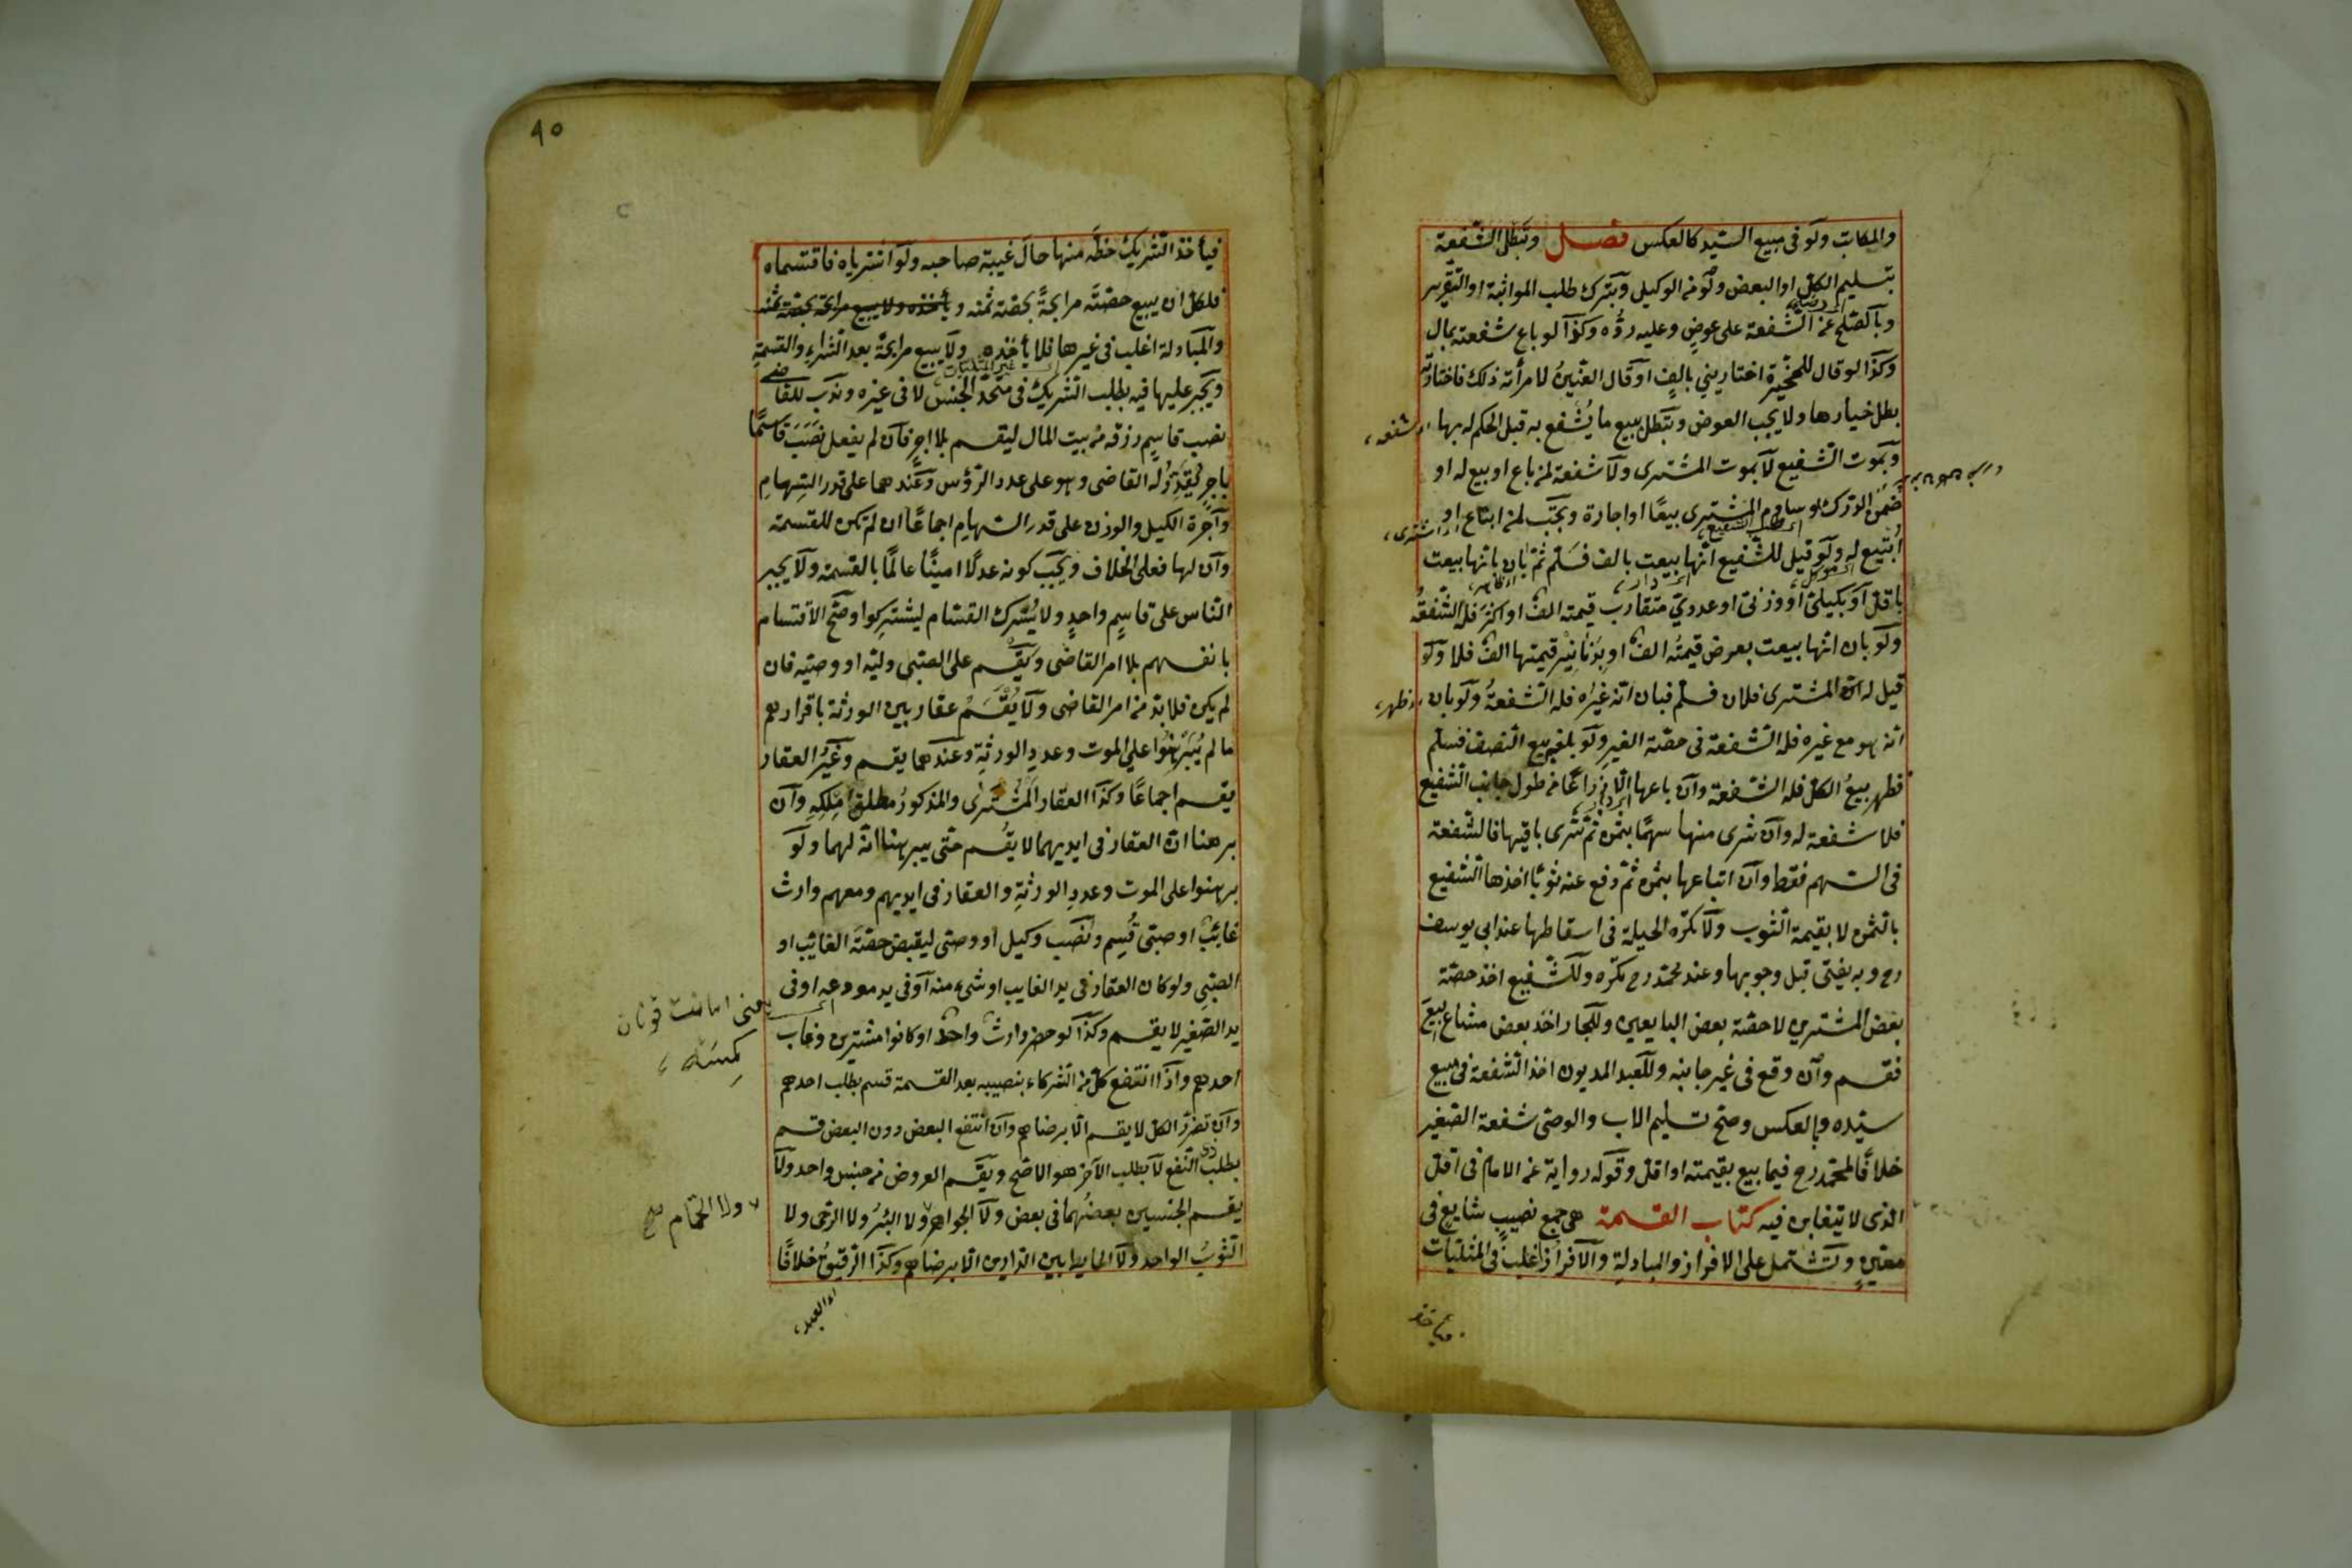 والمكاتب ولو فى مبيع السيد كالعكس فصل وتبطل الشفعة
بتسليم الكل او البعض ولو من الوكيل وبترك طلب المواثبة او التقرير
وبالصلح عن الشفعة على عوض وعليه رده وكذا لو باع شفعته بمال
وكذا لو قال للمخيرة اختارينى بالف او قال العنين لامرأته ذلك فاختارت
بطل خيارها ولا يجب العوض وتبطل ببيع ما يشفع به قبل الحكم له بها
اى شفعه
وبموت الشفيع لا بموت المشترى ولا شفعة لمن باع او بيع له او
ضمن الدرك او ساوم المشترى بيعًا او اجارة وتجب لمن ابتاع او
اى اشترى
ابتيع له ولو قيل للشفيع انها بيعت بالف فسلم ثم بان بانها بيعت
باقل او بكيلى او وزنى او عددى متقارب قيمته الف او اكثر فله الشفعة
ولو بان انها بيعت بعرض قيمته الف او بدنانير قيمتها الف فلا ولو
قيل له ان المشترى فلان فسلم فبان انه غيره فله الشفعة ولو بان
اى ظهر
انه هو مع غيره فله الشفعة فى حصة الغير ولو بلغه بيع النصف فسلم
فظهر بيع الكل فله الشفعة وان باعها الا ذراعًا من طول جانب الشفيع
فلا شفعة له وان شرى منها سهمًا بثمن ثم شرى باقيها فالشفعة
فى السهم فقط وان ابتاعها بثمن ثم دفع عنه ثوبًا اخذها الشفيع
بالثمن لا بقيمة الثوب ولا تكره الحيلة فى اسقاطها عند ابى يوسف
رح وبه يفتى قبل وجوبها وعند محمد رح تكره وللشفيع اخذ حصة
بعض المشترين لا حصة بعض البايعين وللجار اخذ بعض مشاع بيع
فقسم وان وقع فى غير جانبه وللعبد المديون اخذ الشفعة فى مبيع
سيده وبالعكس وصح تسليم الاب والوصى شفعة الصغير
خلافًا لمحمد رح فيما بيع بقيمته او اقل وقوله رواية عن الامام فى اقل
الذى لا يتغابن فيه كتاب القسمة هى جمع نصيب شايع فى
معين وتشتمل على الافراز والمبادلة والافراز اغلب فى المثليات
٩٥
فيأخذ الشريك حظه منها حال غيبة صاحبه ولو اشترياه فاقتسماه
فلكل ان يبيع حصته مرابحةً بحصته ثمنه و يأخذه ولا يبيع مرابحة بحصة ثمنه
والمبادلة اغلب فى غيرها فلا يأخذه ولا يبيع مرابحة بعد الشراء والقسمة
ويجبر عليها فيه بطلب الشريك فى متحد الجنس لا فى غيره وندب للقاضى
نصب قاسم رزقه من بيت المال ليقسم بلا اجر فان لم يفعل نصب قاسمًا
باجر يقدره له القاضى وهو على عدد الرؤس وعندهما على قدر السهام
واجرة الكيل والوزن على قدر السهام اجماعًا ان لم تكن للقسمة
وان لها فعلى الخلاف ويجب كونه عدلًا امينًا عالمًا بالقسمة ولا يجبر
الناس على قاسم واحد ولا يترك القسام ليشتركوا وصح الاقتسام
بانفسهم بلا امر القاضى ويقسم على الصبى وليه او وصيه فان
لم يكن فلا بد من امر القاضى ولا يقسم عقار بين الورثة باقرارهم
ما لم يبرهنوا على الموت وعدد الورثة وعندهما يقسم وغير العقار
يقسم اجماعًا وكذا العقار المشترى والمذكور مطلق ملكه وان
برهنا ان العقار فى ايديهما لا يقسم حتى يبرهنا انه لهما ولو
برهنوا على الموت وعدد الورثة والعقار فى ايديهم ومعهم وارث
غائب او صبى قسم ونصب وكيل او وصى ليقبض حصة الغائب او
الصبى ولو كان العقار فى يد الغايب او شىء منه او فى يد مودعه او فى
يعنى امانت قونان كمسنه
يد الصغير لا يقسم وكذا لو حضر وارث واحد او كانوا مشترين وغاب
احدهم واذا انتفع كل من الشركاء بنصيبه بعد القسمة قسم بطلب احدهم
وان تضرر الكل لا يقسم الا برضاهم وان انتفع البعض دون البعض قسم
بطلب ذى النفع لا بطلب الآخر هو الاصح ويقسم العروض من جنس واحد ولا
يقسم الجنسين بعضهما فى بعض ولا الجواهر ولا البئر ولا الرحى ولا
ولا الحمام صح
الثوب الواحد ولا الحايط بين الدارين الا برضاهم وكذا الرقيق خلافًا
اى العبد